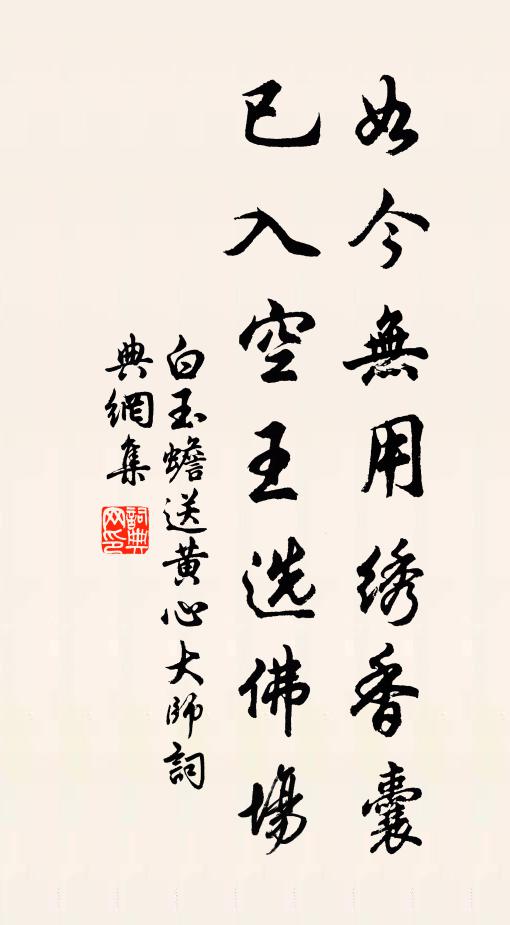 如今無用绣香囊
已入空王选佛場
白玉蟾送黄心大師詞
典網集
詞典网印